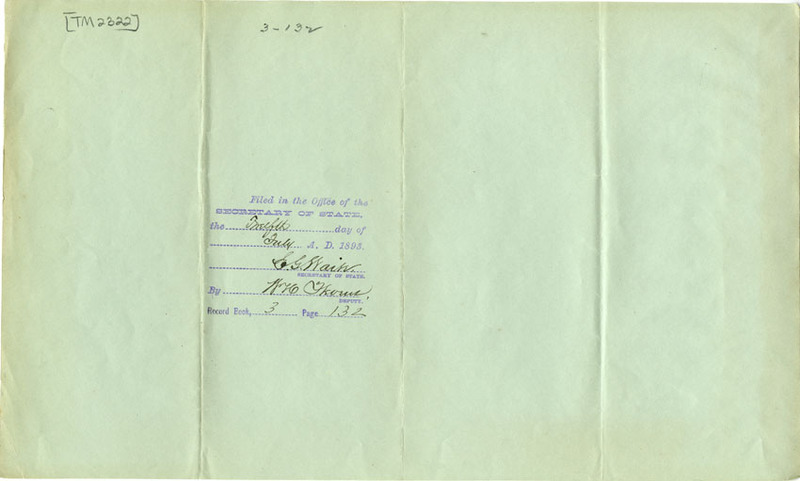 [TM2322]
3-132
Filed in the Office of the
SECRETARY OF STATE,
the Twelfth day of
July A. D. 1893.
E. G. Waite
SECRETARY OF STATE.
By W H
DEPUTY.
Record Book, 3 Page 132